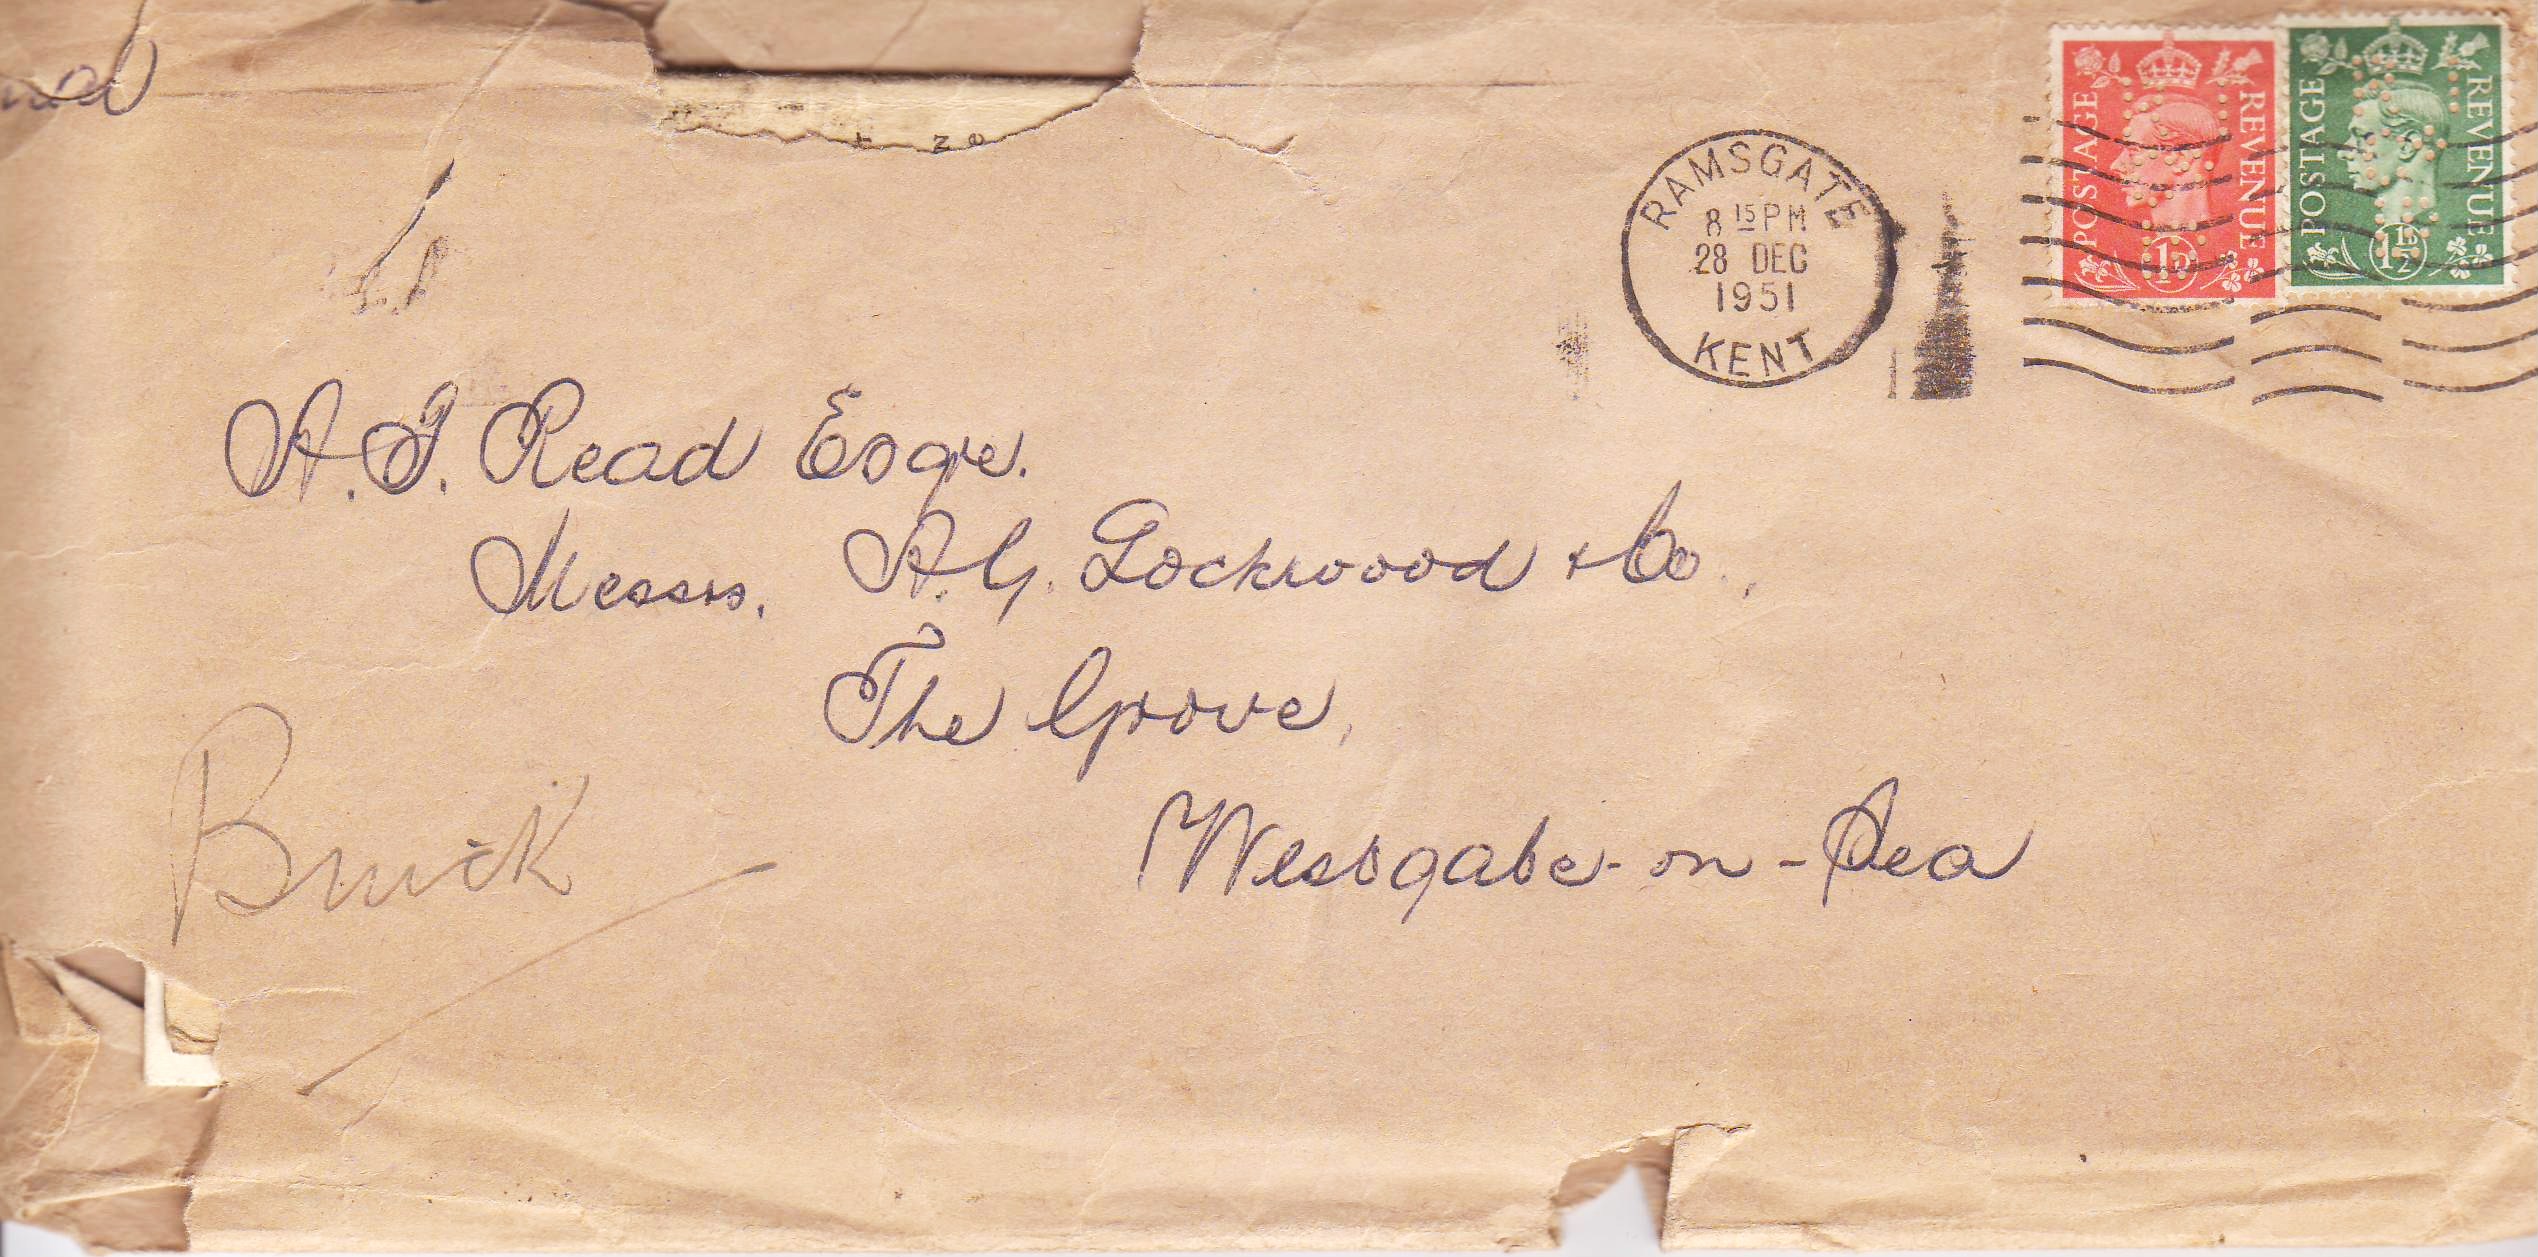 RAMSGATE
8 15 PM
28 DEC
1951
KENT
POSTAGE REVENUE
1D
POSTAGE REVENUE
1½D
A. J. Read Esqre.
Messrs. A. G. Lockwood + Co.,
The Grove,
Westgate-on-Sea
Buick